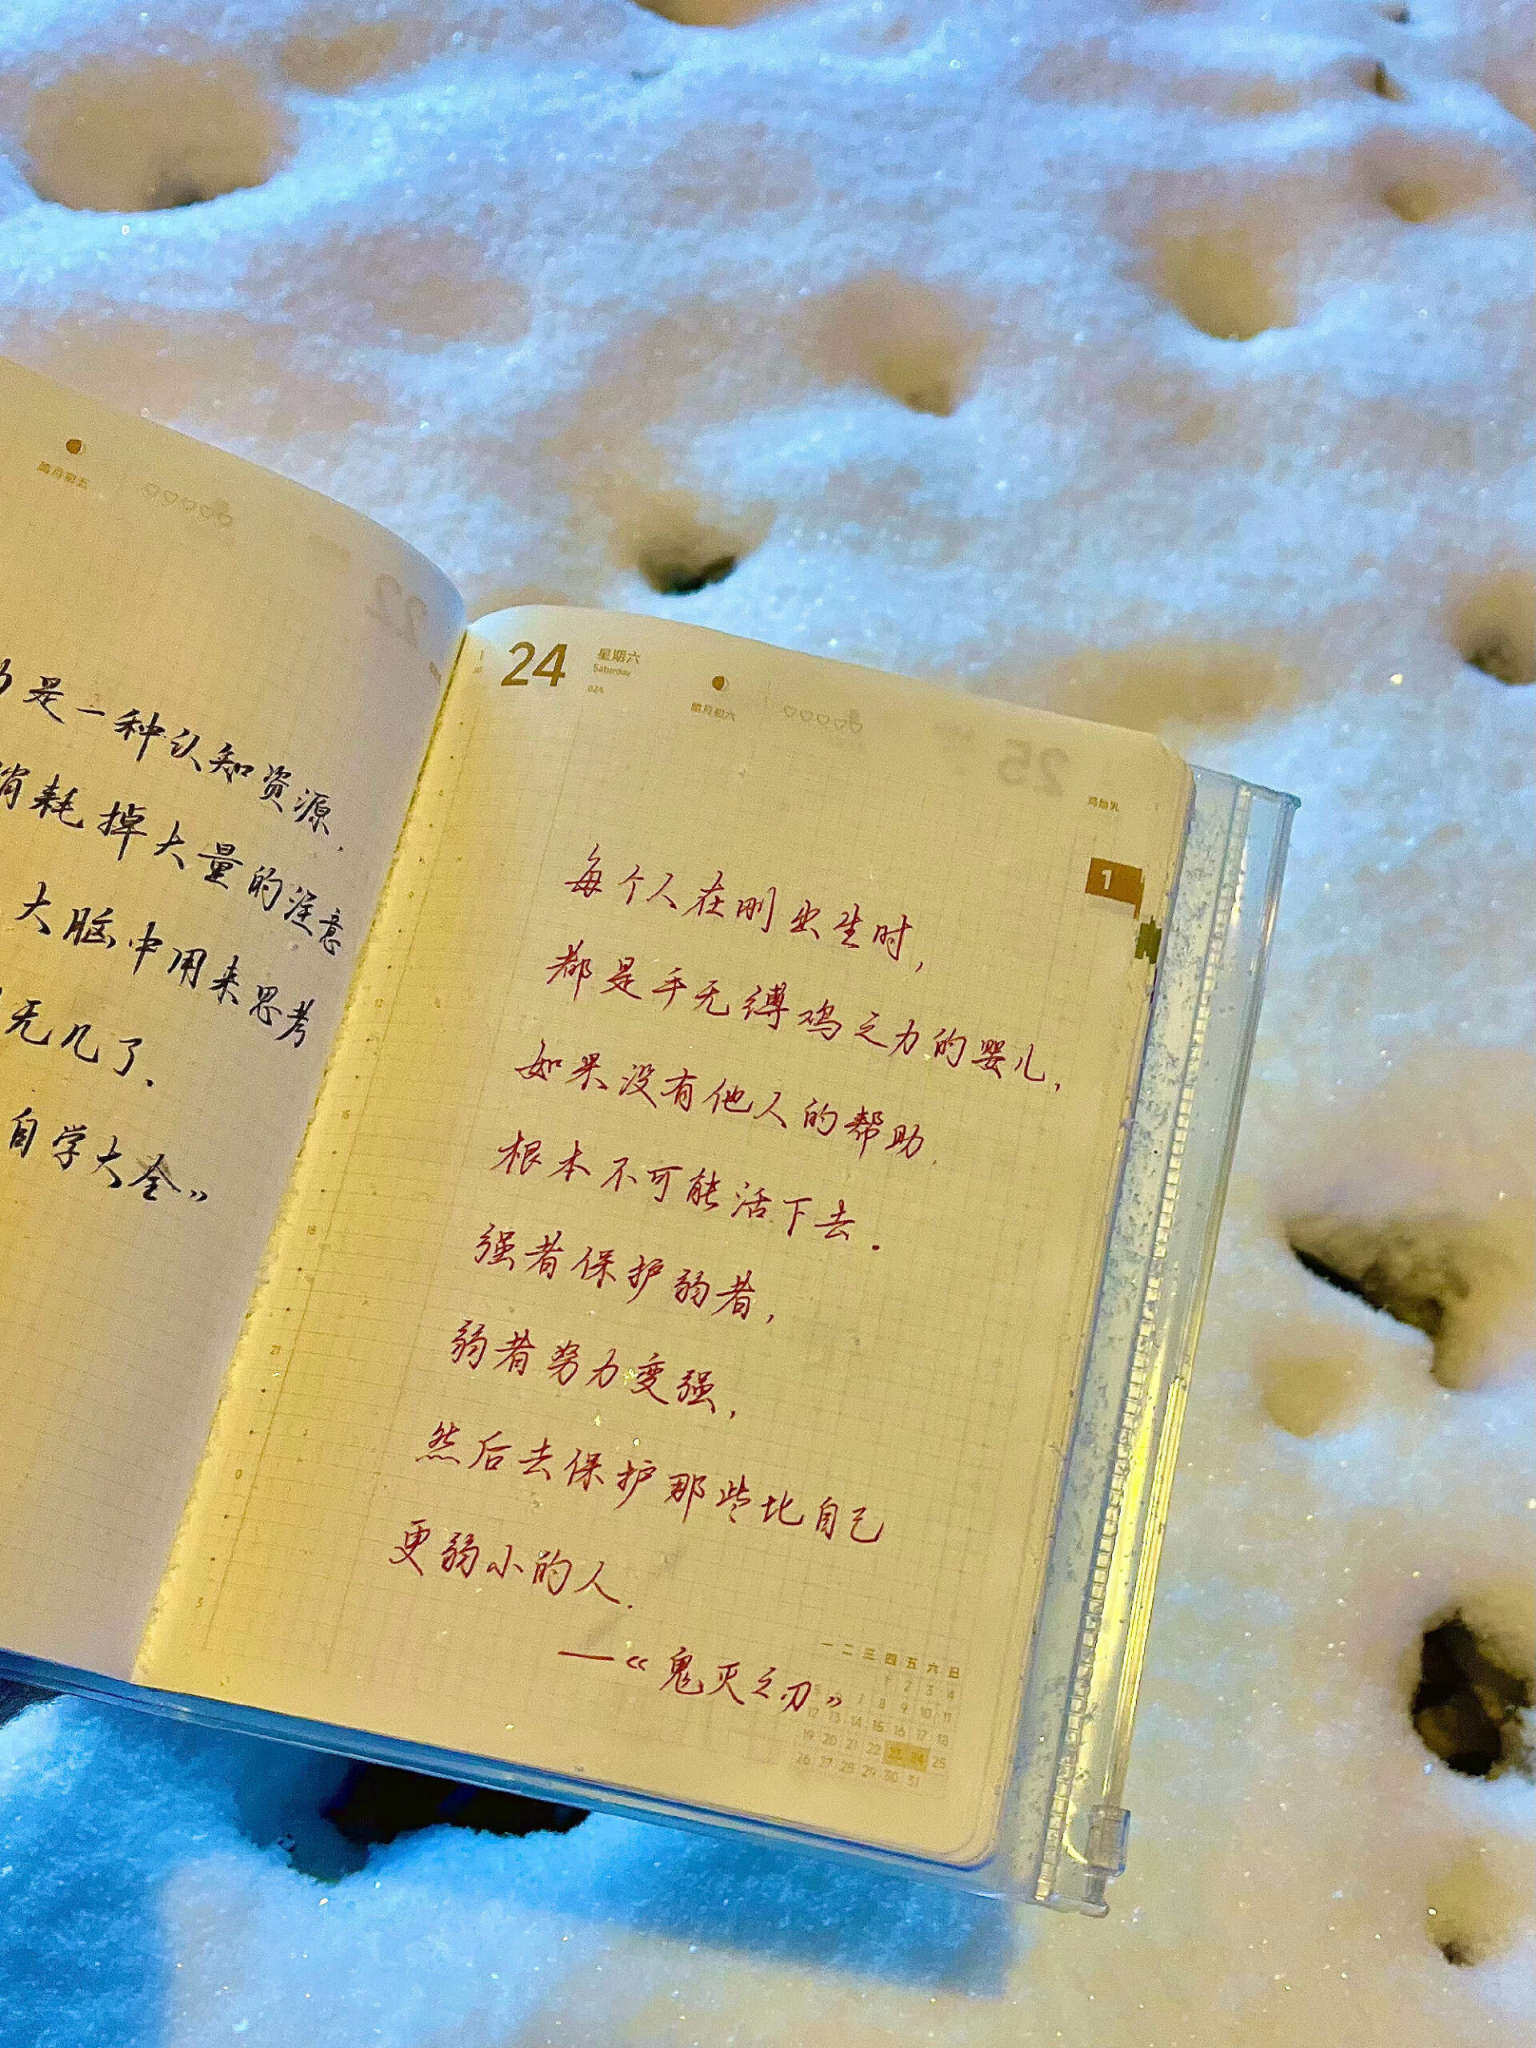 腊月初五
是一种认知资源，
消耗掉大量的注意
大脑中用来思考
无几了．
自学大全》
24
星期六
Saturday
024
腊月初六
鸡始乳
1
每个人在刚出生时，
都是手无缚鸡之力的婴儿，
如果没有他人的帮助．
根本不可能活下去．
强者保护弱者，
弱者努力变强，
然后去保护那些比自己
更弱小的人．
—《鬼灭之刃》
一 二 三 四 五 六 日
1 2 3 4
5 6 7 8 9 10 11
12 13 14 15 16 17 18
19 20 21 22 23 24 25
26 27 28 29 30 31